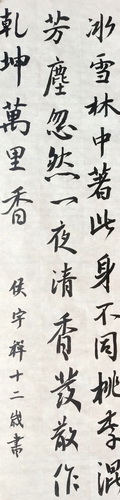 冰雪林中著此身不同桃李混
芳塵忽然一夜清香发散作
乾坤萬里香
侯宇祥十二歲書